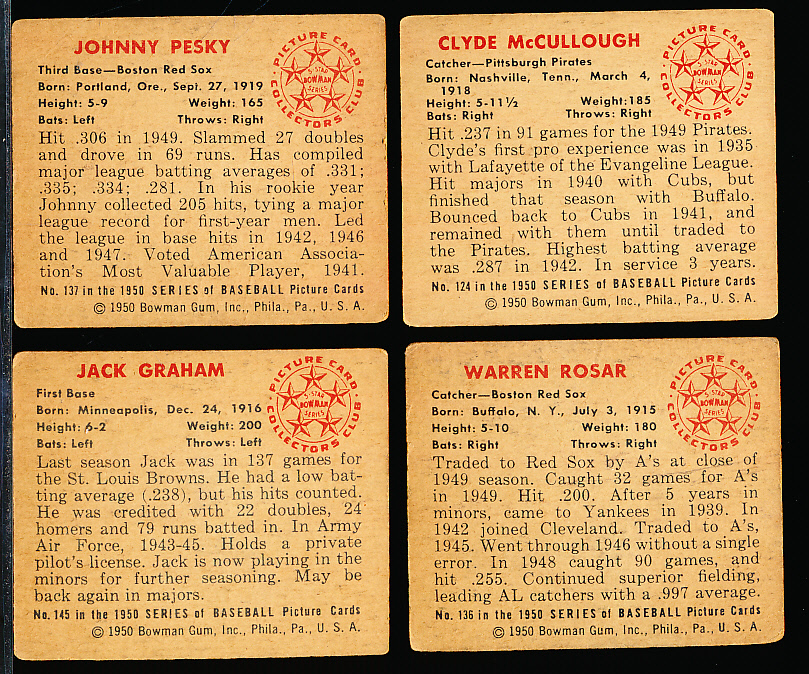 JOHNNY PESKY
PICTURE CARD
COLLECTORS CLUB
5-STAR
BOWMAN
SERIES
Third Base—Boston Red Sox
Born: Portland, Ore., Sept. 27, 1919
Height: 5-9 Weight: 165
Bats: Left Throws: Right
Hit .306 in 1949. Slammed 27 doubles
and drove in 69 runs. Has compiled
major league batting averages of .331;
.335; .334; .281. In his rookie year
Johnny collected 205 hits, tying a major
league record for first-year men. Led
the league in base hits in 1942, 1946
and 1947. Voted American Associa-
tion's Most Valuable Player, 1941.
No. 137 in the 1950 SERIES of BASEBALL Picture Cards
© 1950 Bowman Gum, Inc., Phila., Pa., U. S. A.
CLYDE McCULLOUGH
PICTURE CARD
COLLECTORS CLUB
5-STAR
BOWMAN
SERIES
Catcher—Pittsburgh Pirates
Born: Nashville, Tenn., March 4,
1918
Height: 5-11½ Weight: 185
Bats: Right Throws: Right
Hit .237 in 91 games for the 1949 Pirates.
Clyde's first pro experience was in 1935
with Lafayette of the Evangeline League.
Hit majors in 1940 with Cubs, but
finished that season with Buffalo.
Bounced back to Cubs in 1941, and
remained with them until traded to
the Pirates. Highest batting average
was .287 in 1942. In service 3 years.
No. 124 in the 1950 SERIES of BASEBALL Picture Cards
© 1950 Bowman Gum, Inc., Phila., Pa., U. S. A.
JACK GRAHAM
PICTURE CARD
COLLECTORS CLUB
5-STAR
BOWMAN
SERIES
First Base
Born: Minneapolis, Dec. 24, 1916
Height: 6-2 Weight: 200
Bats: Left Throws: Left
Last season Jack was in 137 games for
the St. Louis Browns. He had a low bat-
ting average (.238), but his hits counted.
He was credited with 22 doubles, 24
homers and 79 runs batted in. In Army
Air Force, 1943-45. Holds a private
pilot's license. Jack is now playing in the
minors for further seasoning. May be
back again in majors.
No. 145 in the 1950 SERIES of BASEBALL Picture Cards
© 1950 Bowman Gum, Inc., Phila., Pa., U. S. A.
WARREN ROSAR
PICTURE CARD
COLLECTORS CLUB
5-STAR
BOWMAN
SERIES
Catcher—Boston Red Sox
Born: Buffalo, N. Y., July 3, 1915
Height: 5-10 Weight: 180
Bats: Right Throws: Right
Traded to Red Sox by A's at close of
1949 season. Caught 32 games for A's
in 1949. Hit .200. After 5 years in
minors, came to Yankees in 1939. In
1942 joined Cleveland. Traded to A's,
1945. Went through 1946 without a single
error. In 1948 caught 90 games, and
hit .255. Continued superior fielding,
leading AL catchers with a .997 average.
No. 136 in the 1950 SERIES of BASEBALL Picture Cards
© 1950 Bowman Gum, Inc., Phila., Pa., U. S. A.